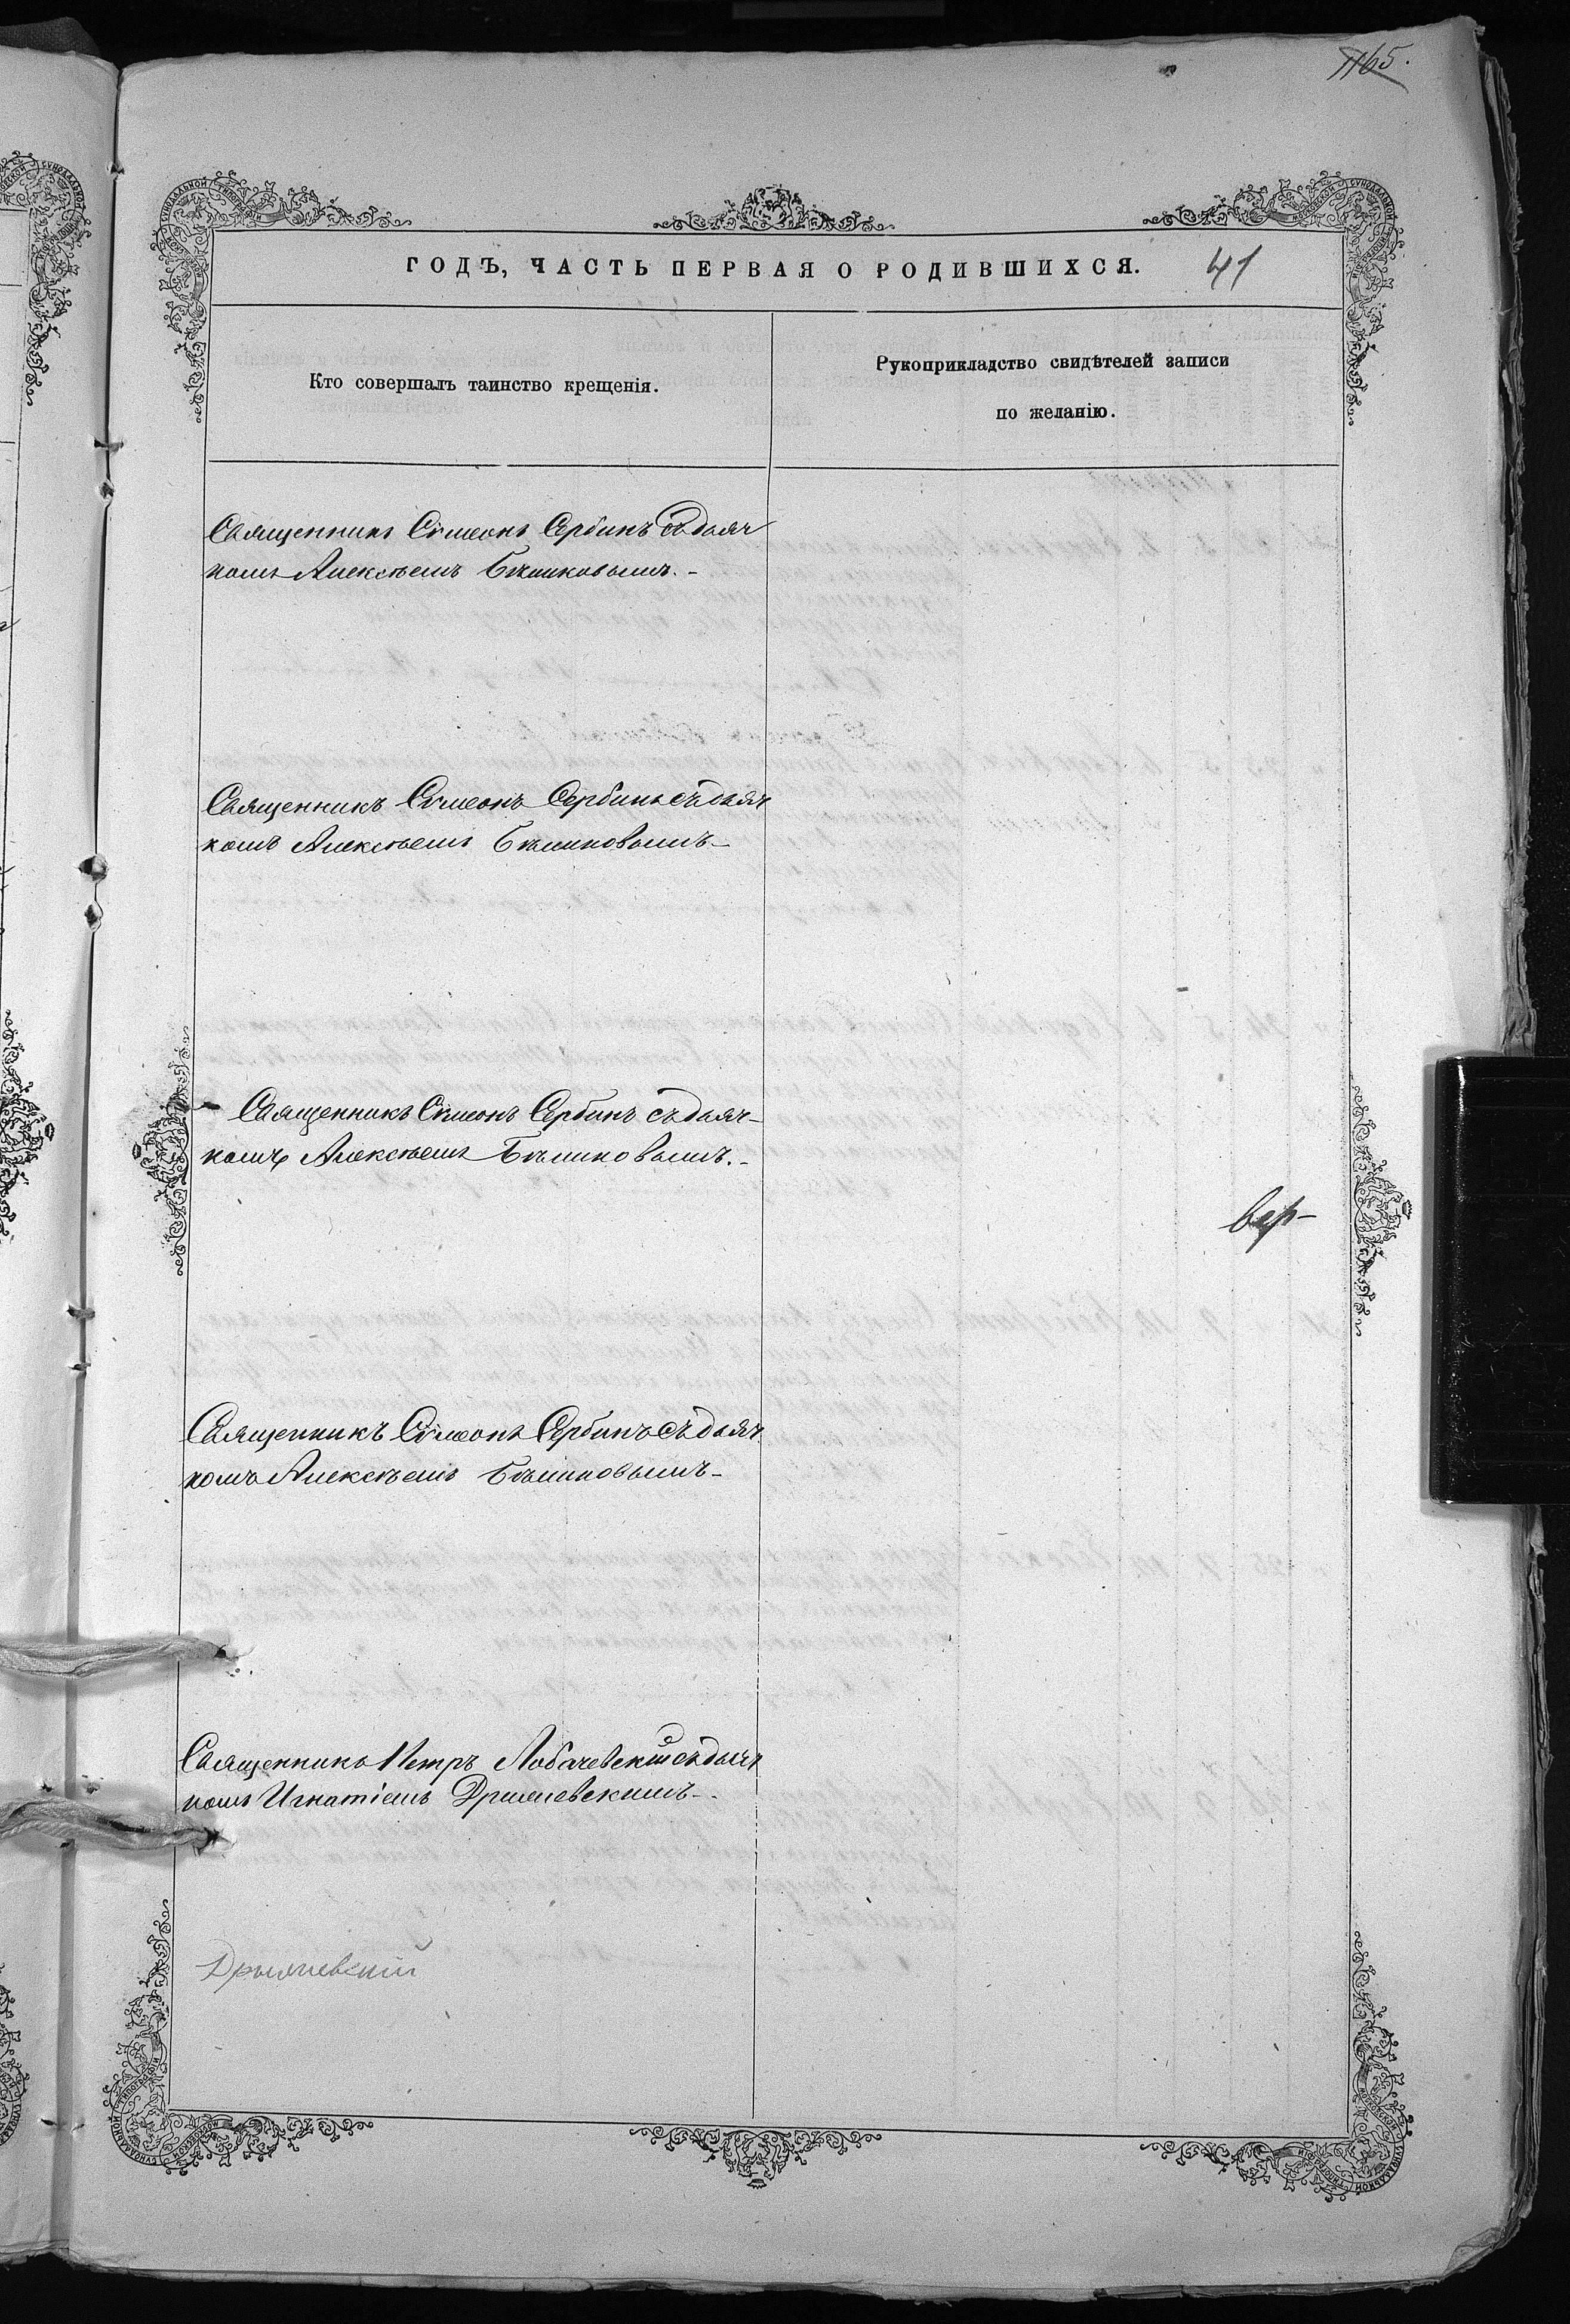 1165.
ГОДЪ, ЧАСТЬ ПЕРВАЯ О РОДИВШИХСЯ. 41
Кто совершалъ таинство крещенія.
Рукоприкладство свидѣтелей записи
по желанію.
Священникъ Симеонъ Сербинъ съ дьяч
комъ Алексѣемъ Бѣликовымъ. -
Священникъ Симеонъ Сербинъ съ дьяч
комъ Алексѣемъ Бѣликовымъ -
Священникъ Симеонъ Сербинъ съ дьяч-
комъ Алексѣемъ Бѣликовымъ. -
вер-
Священникъ Симеонъ Сербинъ съ дьяч
комъ Алексѣемъ Бѣликовымъ -
Священникъ Петръ Лобачевскій съ дьяч
комъ Игнатіемъ Дрылевскимъ -
Дрылевскій